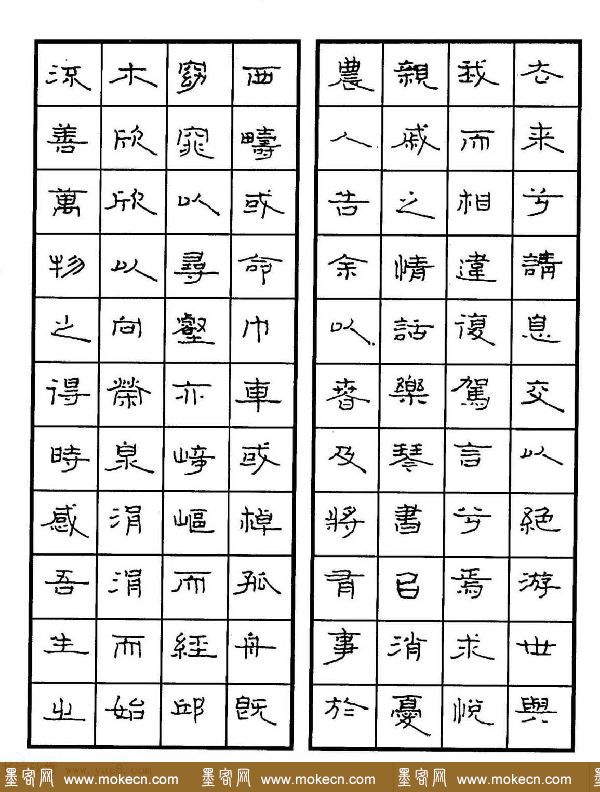 去来兮請息交以絕游世與
我而相違復駕言兮焉求悅
親戚之情話樂琴書㠯消憂
農人告余以春及將有事於
西疇或命巾車或棹孤舟既
窈窕以尋壑亦崎嶇而經邱
木欣欣以向榮泉涓涓而始
流善萬物之得時感吾生之
墨客网 www.mokecn.com 墨客网 www.mokecn.com 墨客网 www.mokecn.com